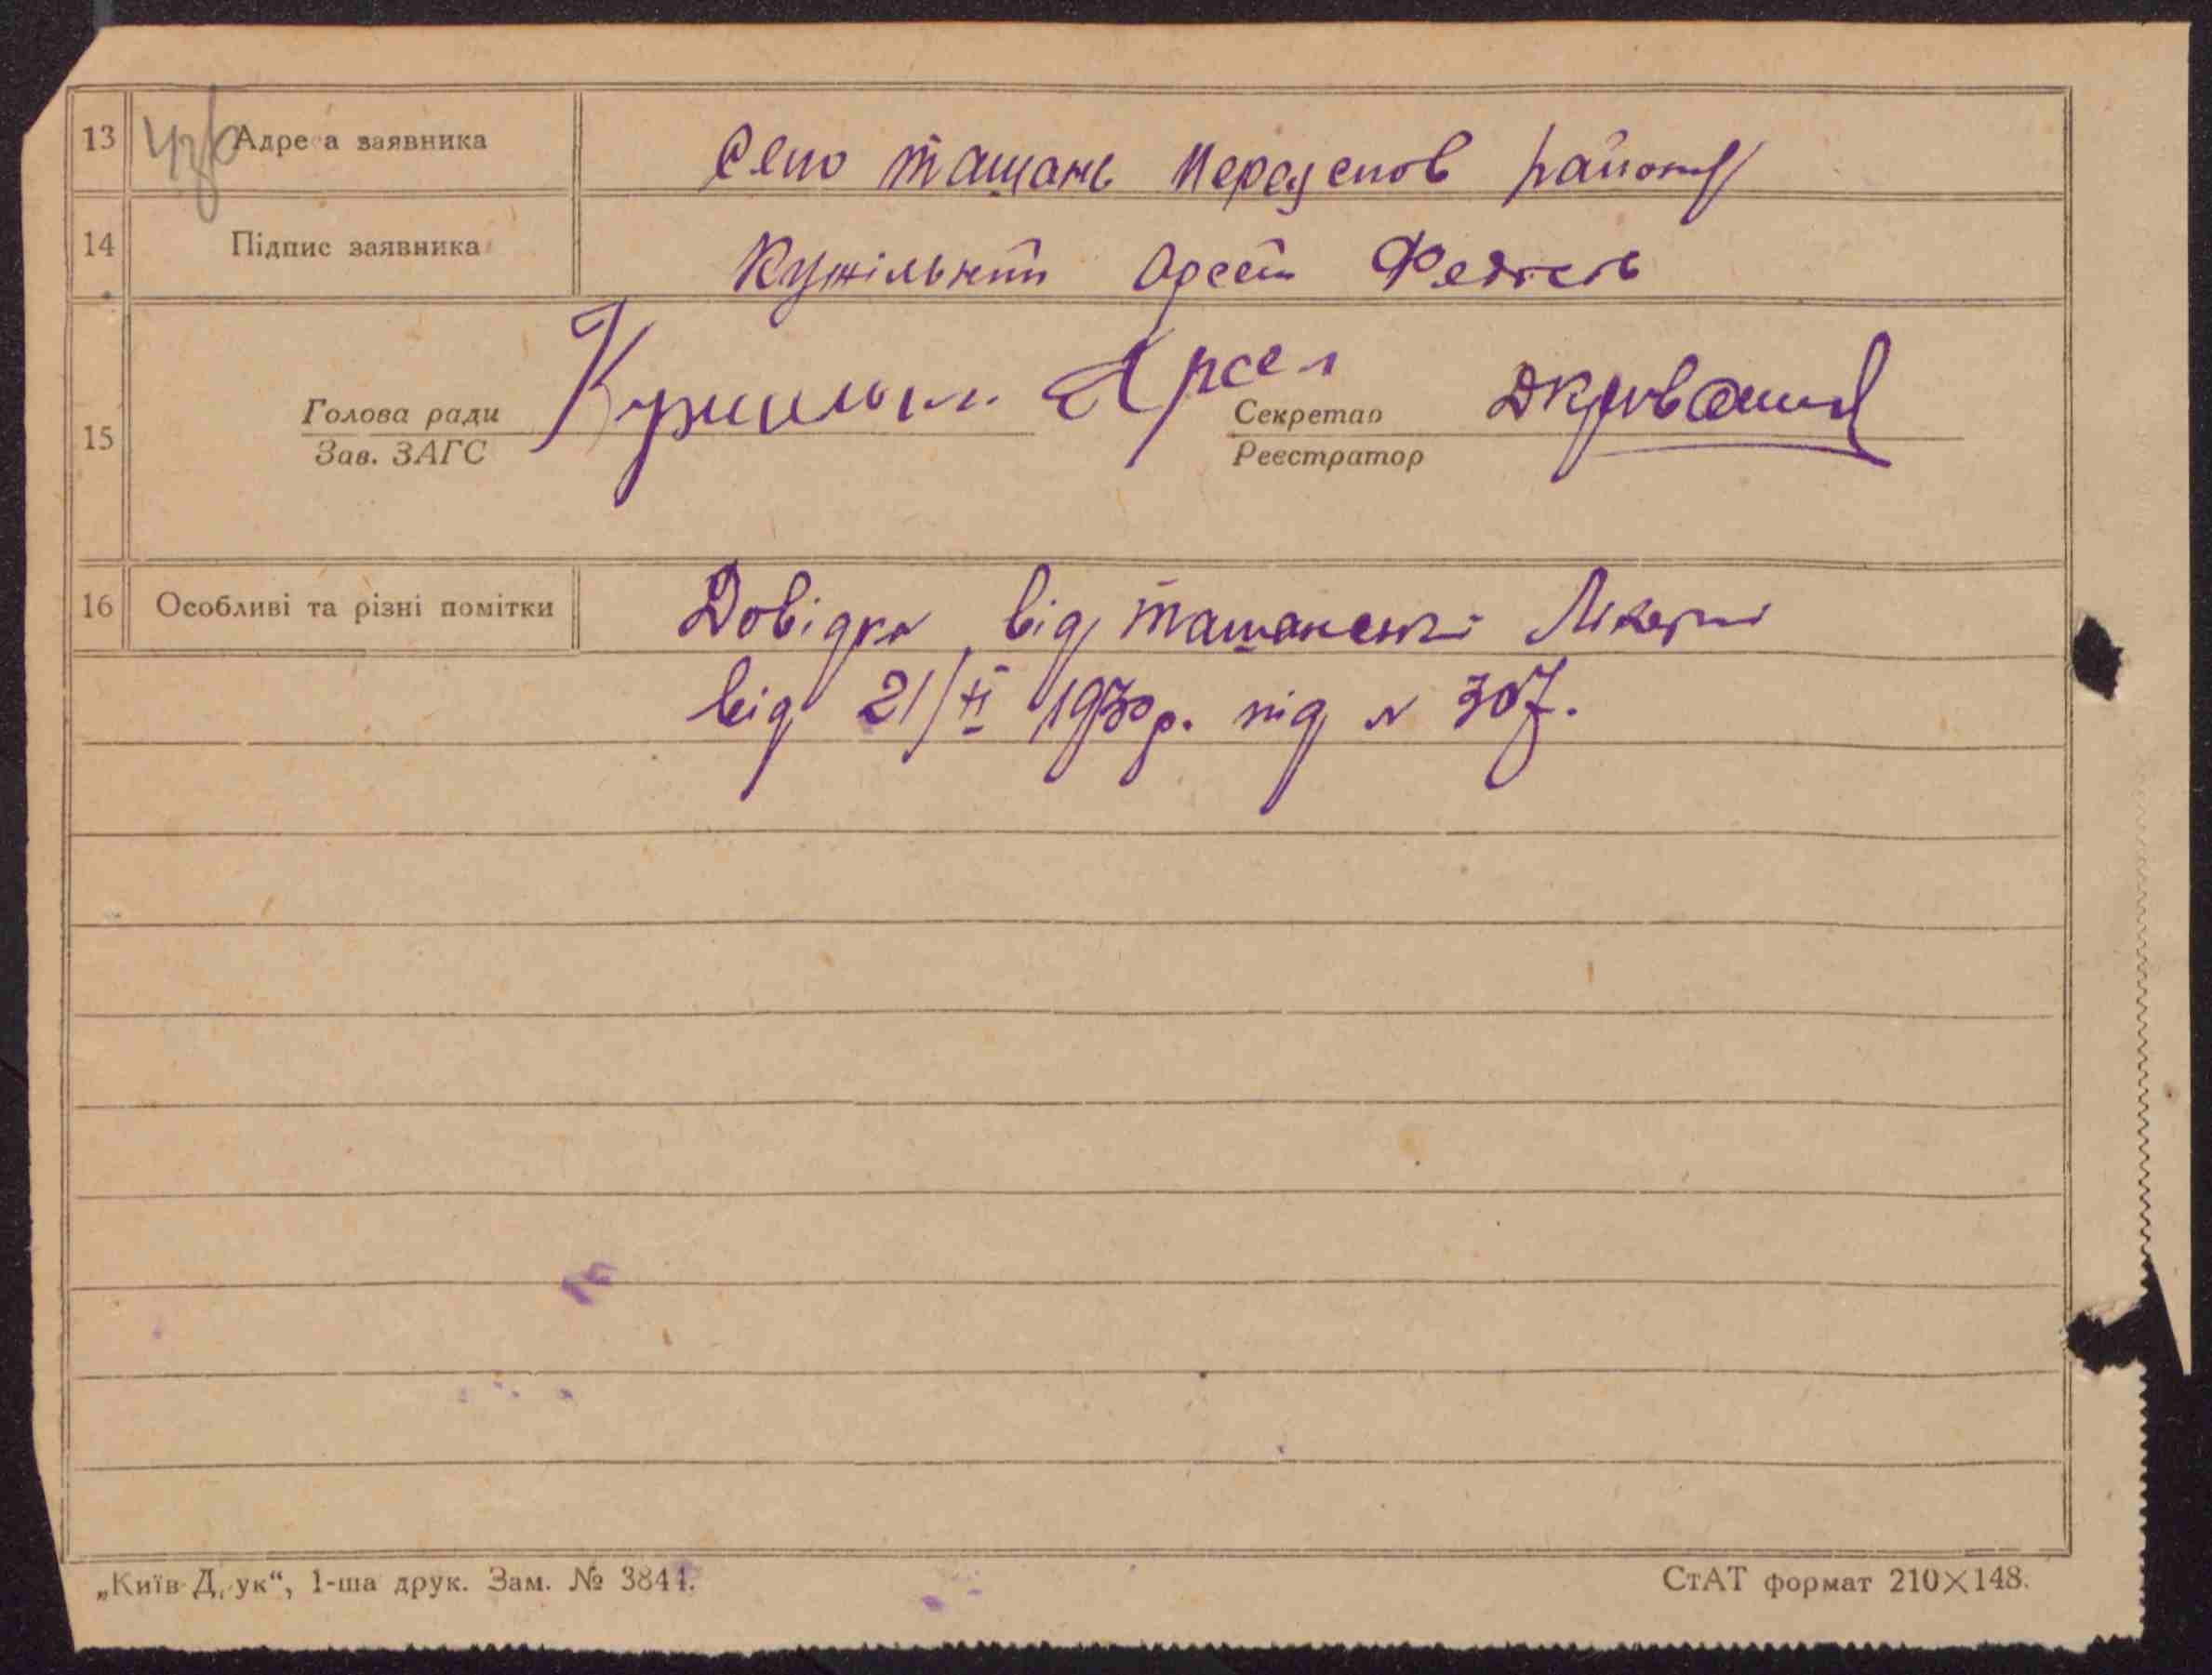 13 Адреса заявника Село ташань Переяслов району
14 Підпис заявника Кужільний Арсен
15 Голова ради Секретар
Зав. ЗАГС Реєстратор
16 Особливі та різні помітки Довідка від ташанської Лікарні
від 21/XI 1930 р. під № 307.
„Київ-Друк“, 1-ша друк. Зам. № 3844. СтАТ формат 210×148.